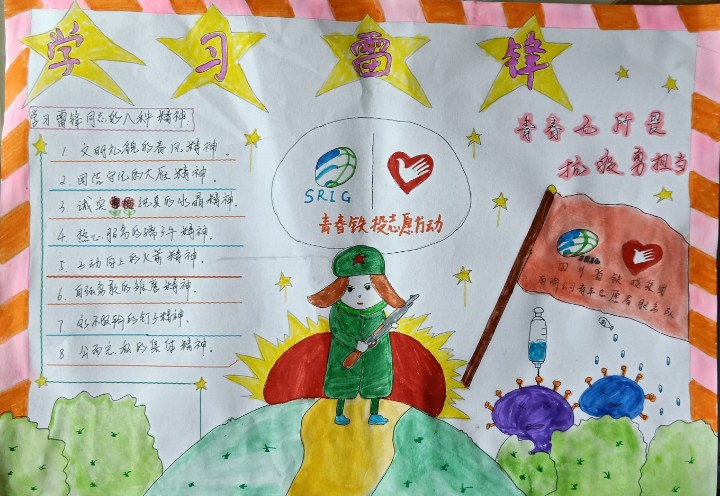 学习雷锋
学习雷锋同志的八种精神
1 文明礼貌的春风精神。
2. 团结守纪的大雁精神。
3. 诚实纯真的水晶精神。
4 热心服务的骆子午精神。
5. 主动向上的火箭精神。
6 自强高歌的雄鹰精神。
7 永不服料的钉子精神。
8 公而忘私的集体精神。
SRIG
青春铁投志愿行动
青春无所畏
抗疫勇担当
SRIG
四川省铁投集团
青年志愿者服务队